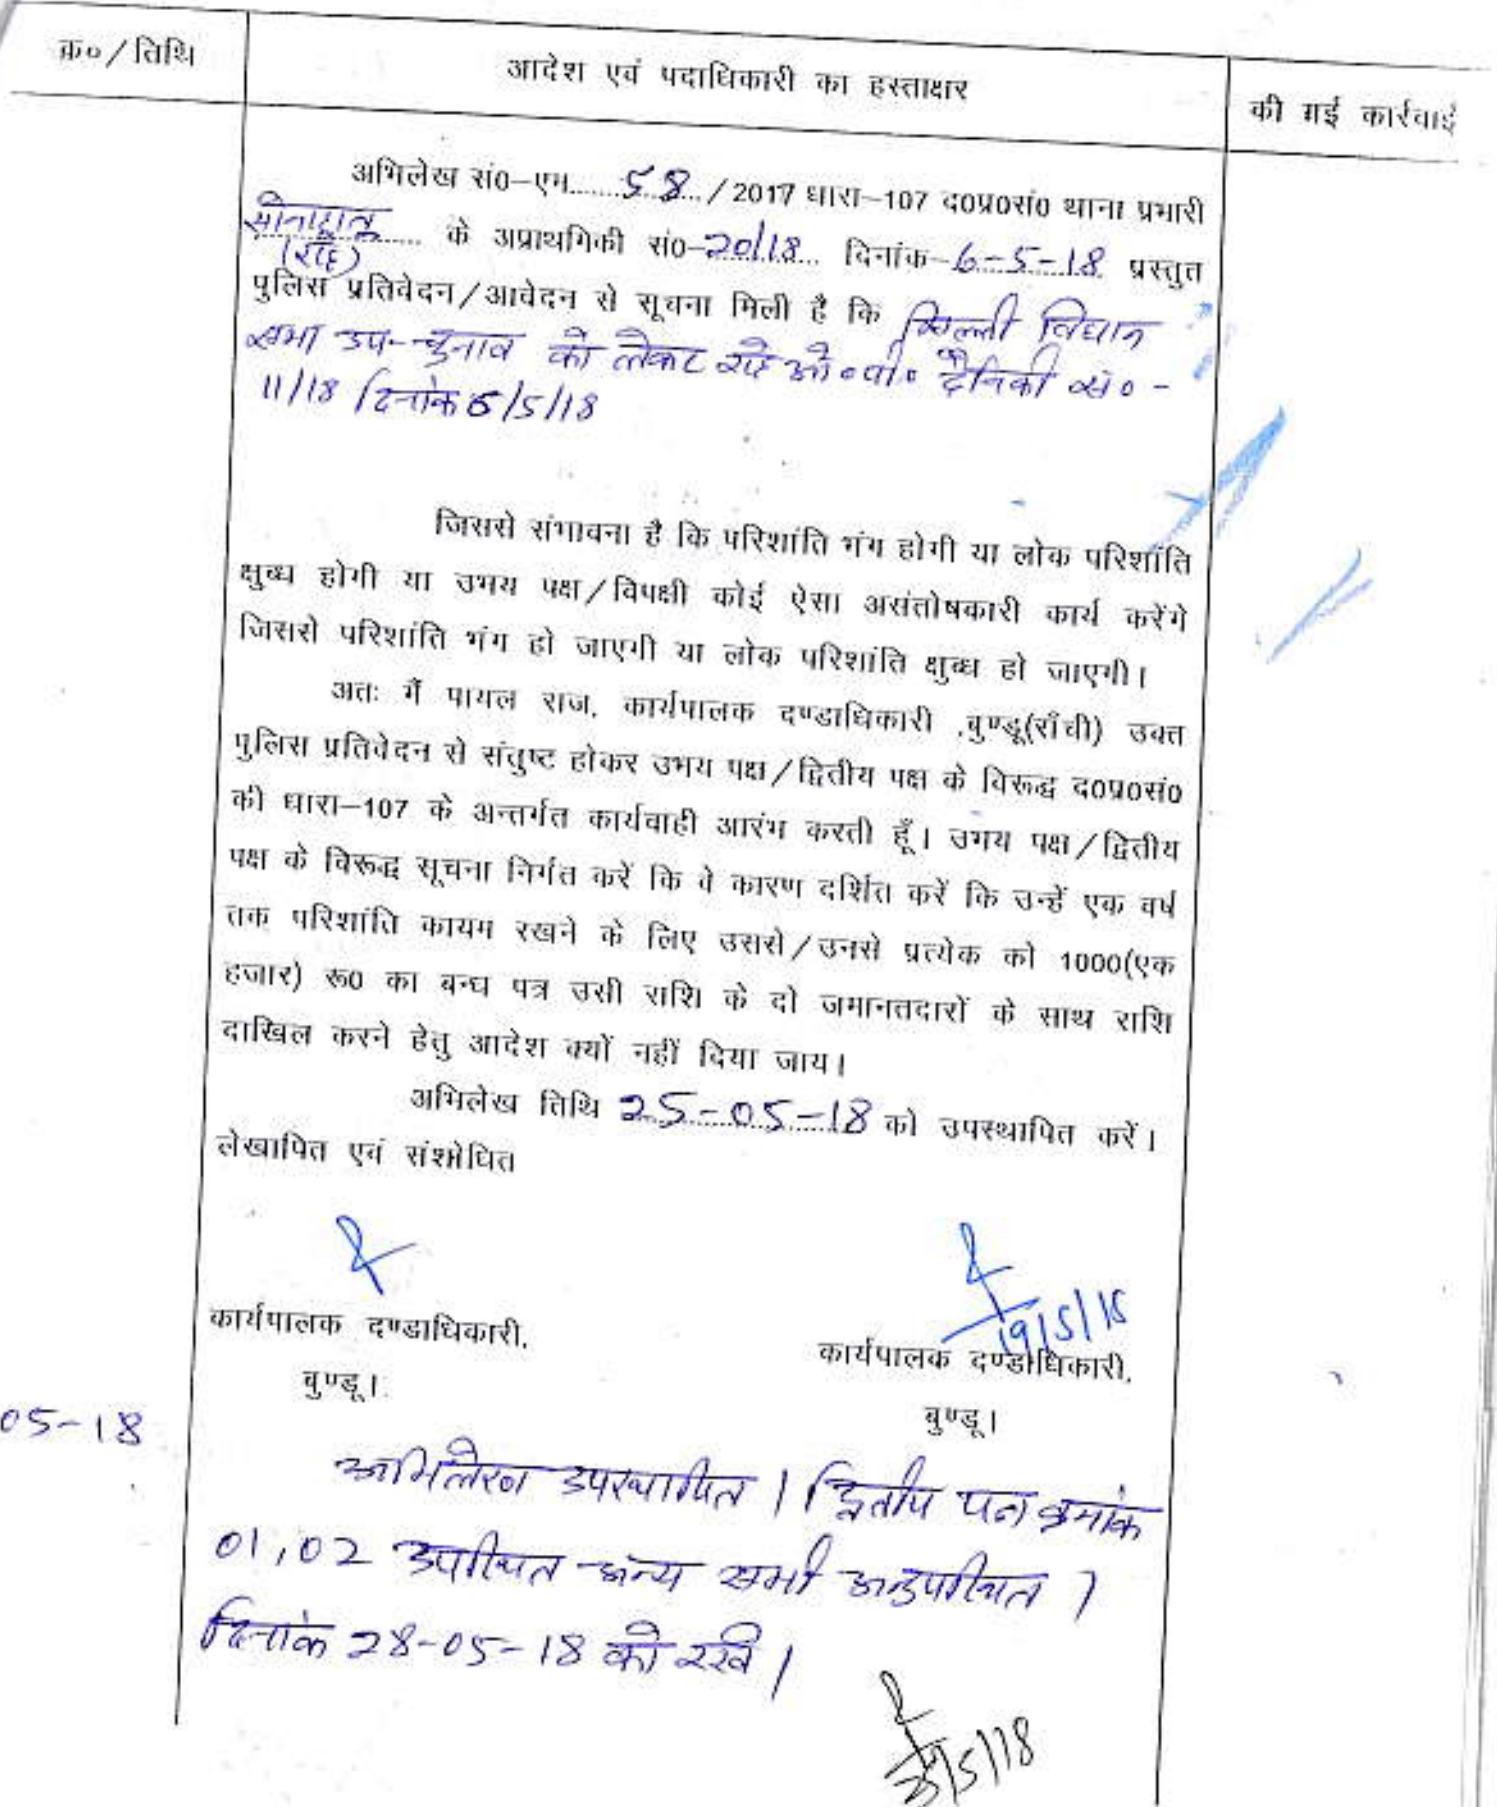 क्र०/तिथि
आदेश एवं पदाधिकारी का हस्ताक्षर
की गई कार्रवाई
अभिलेख सं0-एम.......58.../2017 धारा-107 द0प्र0सं0 थाना प्रभारी
सोनाहातू (राहे) ...... के अप्राथमिकी सं0-20/18... दिनांक-6-5-18 प्रस्तुत
पुलिस प्रतिवेदन/आवेदन से सूचना मिली है कि सिल्ली विधान
सभा उप-चुनाव को लेकर राहे ओ०पी० दैनिकी सं०-
11/18 दिनांक 6/5/18
जिससे संभावना है कि परिशांति भंग होगी या लोक परिशांति
क्षुब्ध होगी या उभय पक्ष/विपक्षी कोई ऐसा असंतोषकारी कार्य करेंगे
जिससे परिशांति भंग हो जाएगी या लोक परिशांति क्षुब्ध हो जाएगी।
अतः मैं पायल राज, कार्यपालक दण्डाधिकारी ,बुण्डू(राँची) उक्त
पुलिस प्रतिवेदन से संतुष्ट होकर उभय पक्ष/द्वितीय पक्ष के विरूद्ध द0प्र0सं0
की धारा-107 के अन्तर्गत कार्यवाही आरंभ करती हूँ। उभय पक्ष/द्वितीय
पक्ष के विरूद्ध सूचना निर्गत करें कि वे कारण दर्शित करें कि उन्हें एक वर्ष
तक परिशांति कायम रखने के लिए उससे/उनसे प्रत्येक को 1000(एक
हजार) रू0 का बन्ध पत्र उसी राशि के दो जमानतदारों के साथ राशि
दाखिल करने हेतु आदेश क्यों नहीं दिया जाय।
अभिलेख तिथि 25-05-18 को उपस्थापित करें।
लेखापित एवं संशोधित
19/5/18
कार्यपालक दण्डाधिकारी, कार्यपालक दण्डाधिकारी,
बुण्डू। बुण्डू।
05-18
अभिलेख उपस्थापित। द्वितीय पक्ष क्रमांक
01,02 उपस्थित अन्य सभी अनुपस्थित।
दिनांक 28-05-18 को रखें।
25/5/18